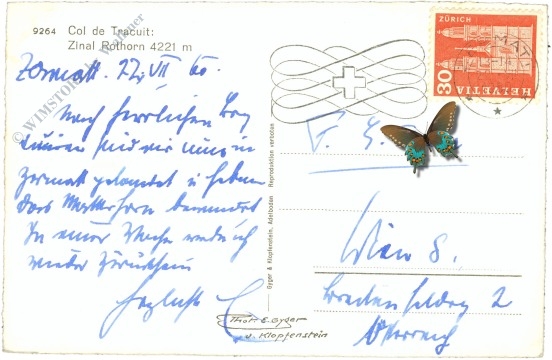 9264 Col de Tracuit:
Zinal Rothorn 4221 m
Zermatt. 22. VII 60.
Nach herrlichen Berg
touren sind wir nun in
Zermatt gelandet u. haben
das Matterhorn bewundert
In einer Woche werde ich
wieder zurück sein
Herzlichst
© WIMSTOIS
Gyger & Klopfenstein, Adelboden Reproduktion verboten
Photo E. Gyger
u. Klopfenstein
ZÜRICH
30
HELVETIA
ZERMATT
Wien 8.
2
Österreich